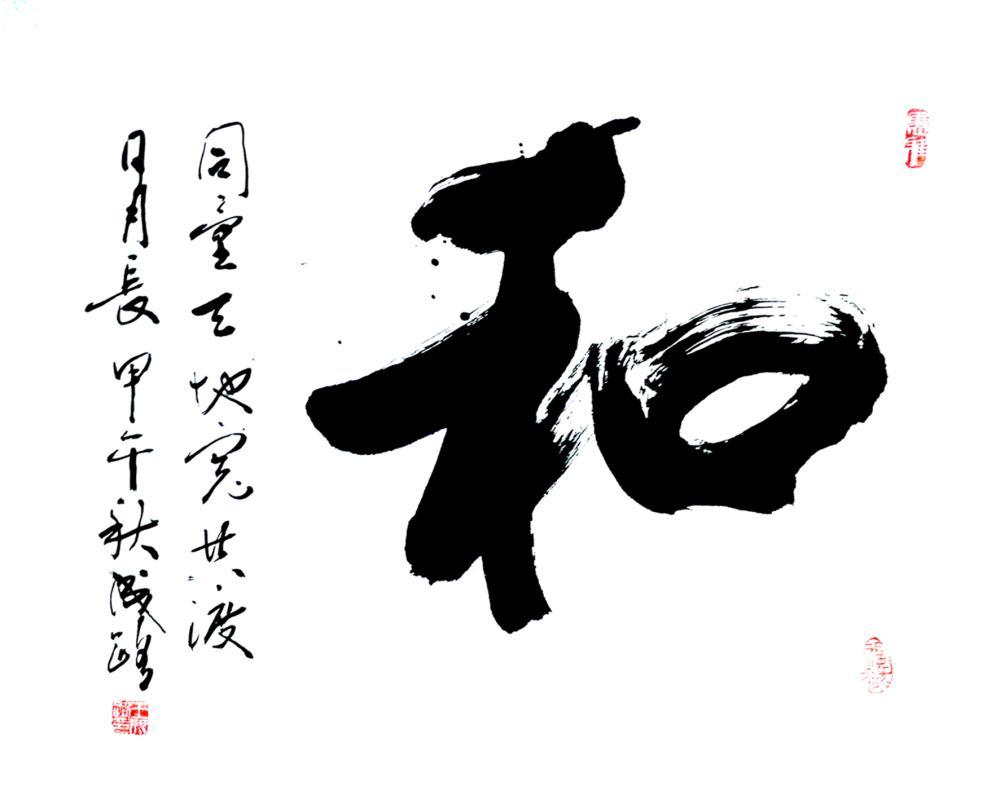 和
同量天地寬共渡
日月長甲午秋